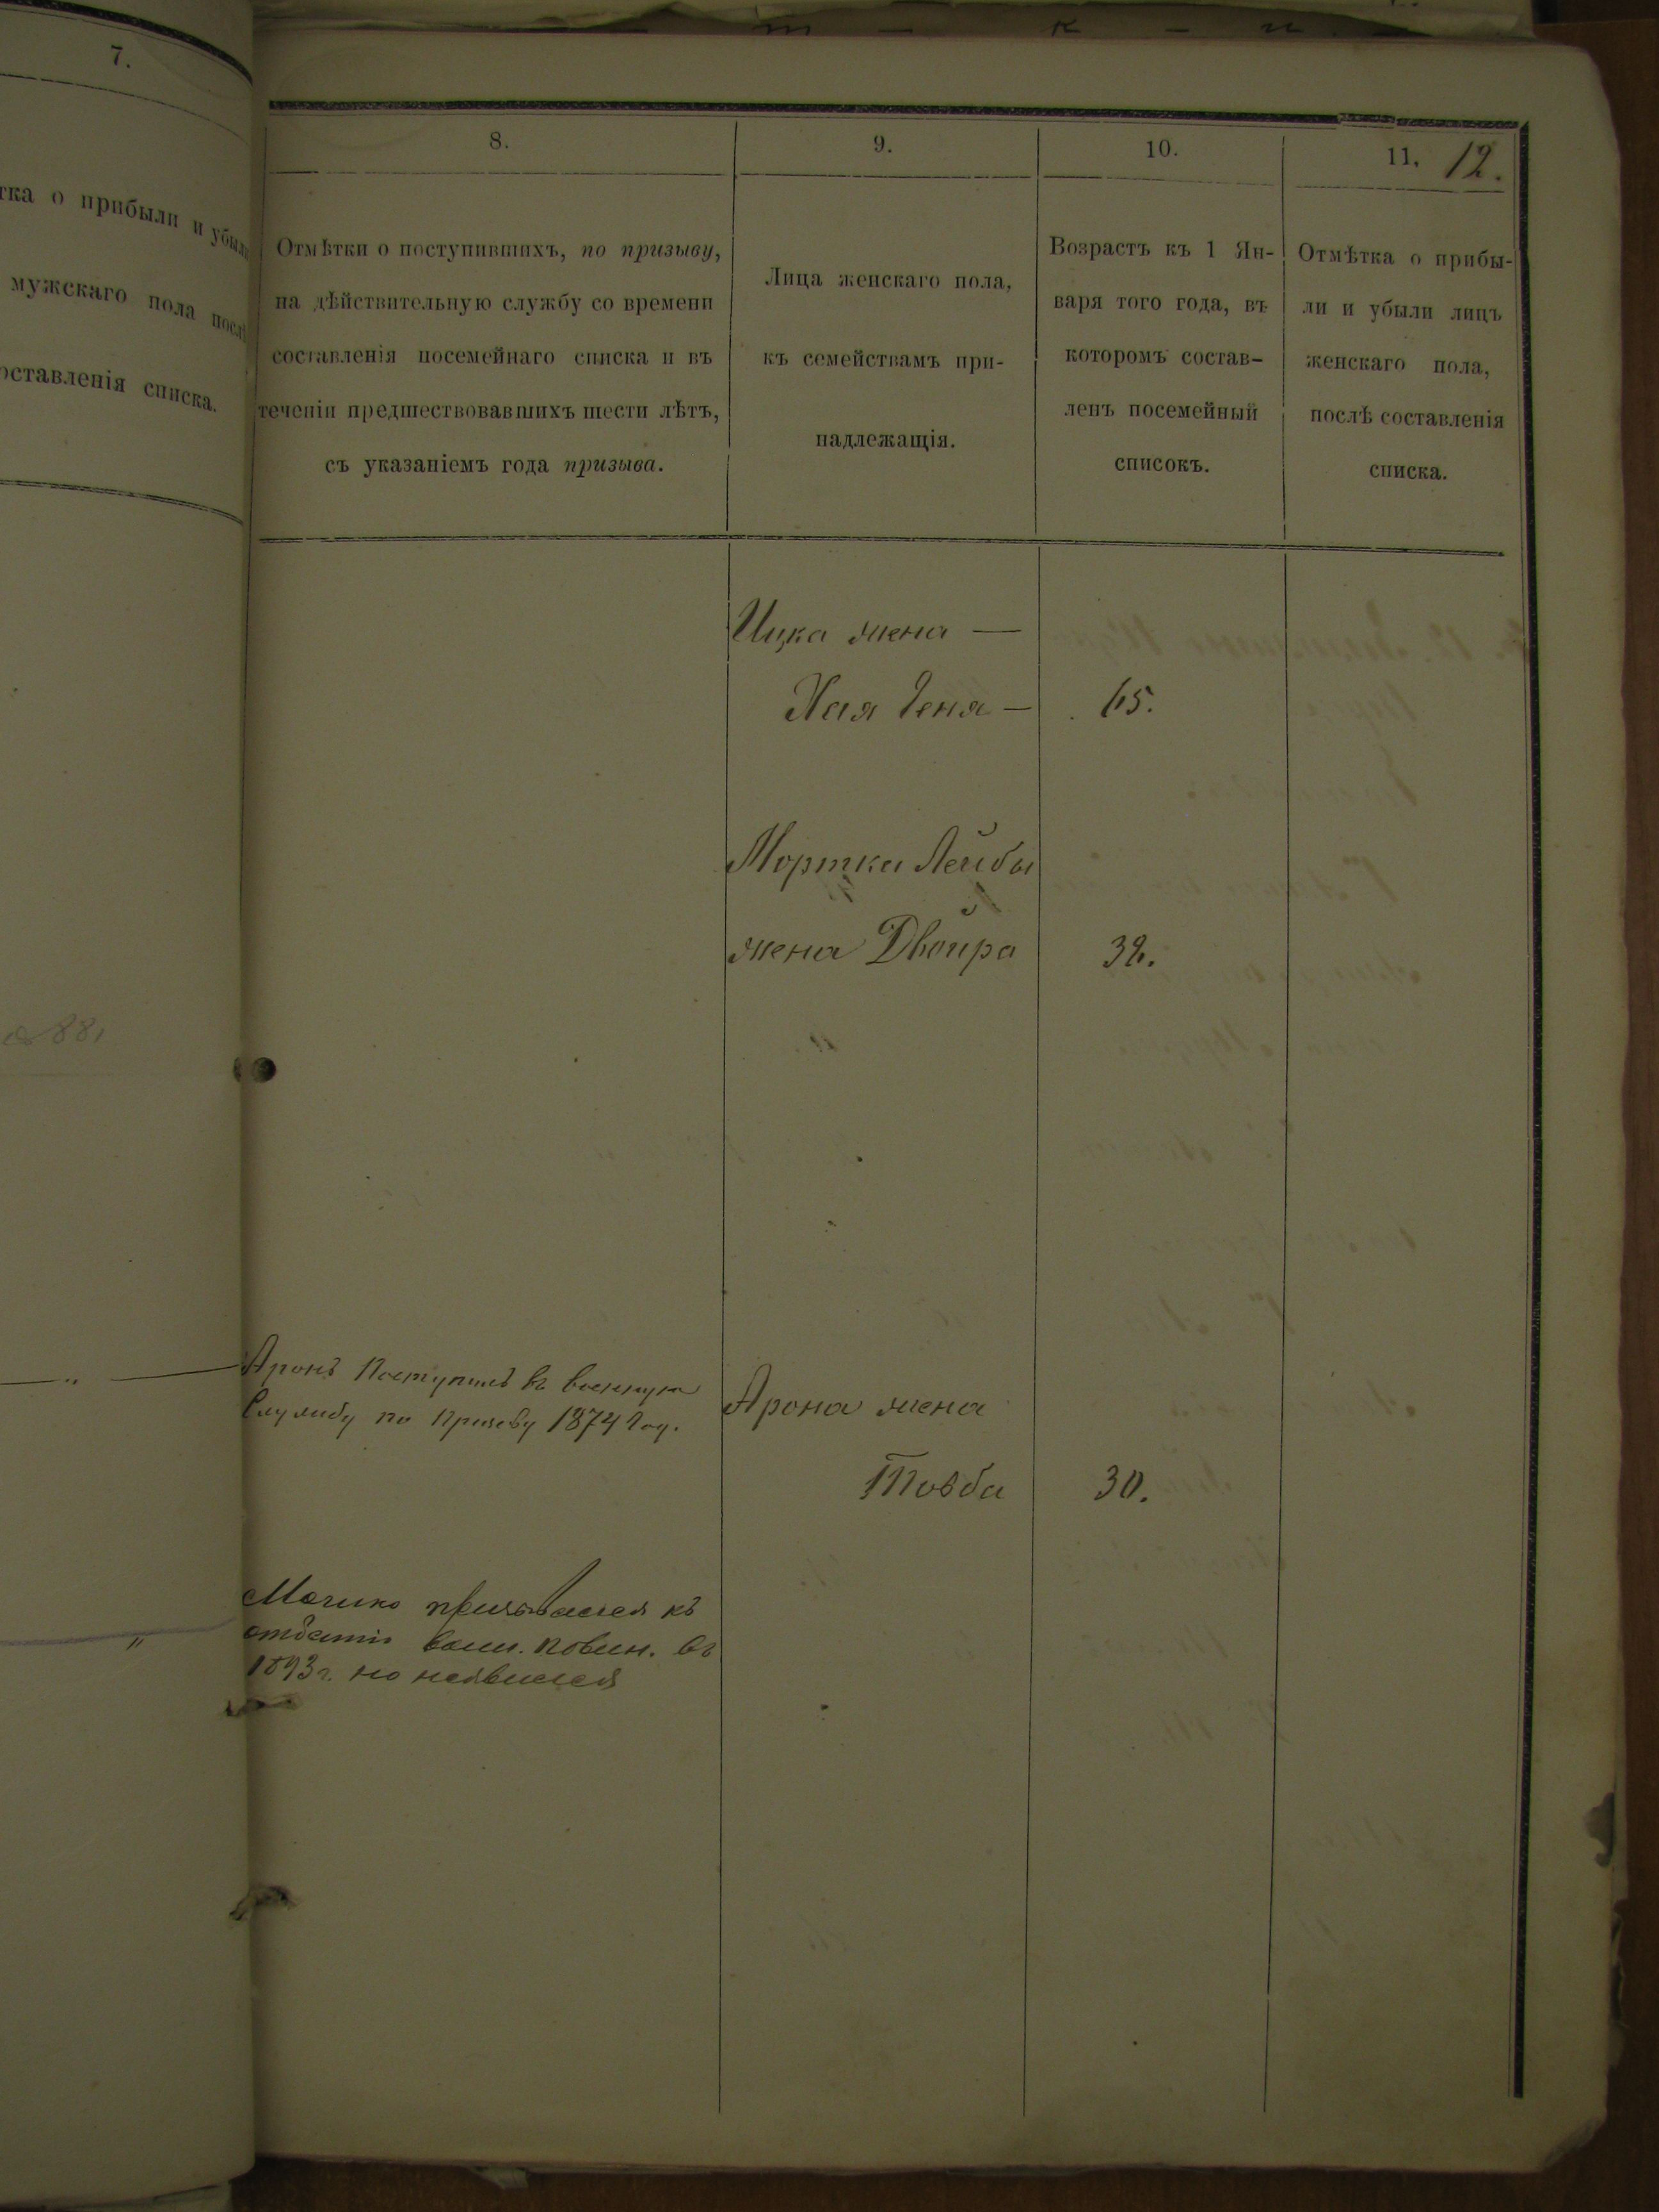 т - к - и.
7.
тка о прибыли и убыли
мужскаго пола послѣ
оставленія списка.
881
"
"
8.
9.
10.
11.
12.
Отмѣтки о поступившихъ, по призыву,
на дѣйствительную службу со времени
составленія посемейнаго списка и въ
теченіи предшествовавшихъ шести лѣтъ,
съ указаніемъ года призыва.
Лица женскаго пола,
къ семействамъ при-
надлежащія.
Возрастъ къ 1 Ян-
варя того года, въ
которомъ состав-
ленъ посемейный
списокъ.
Отмѣтка о прибы-
ли и убыли лицъ
женскаго пола,
послѣ составленія
списка.
Ицка жена —
Хая Геня — 65.
Мортка Лейбы
жена Двойра 32.
Аронъ Поступилъ въ военную
Службу по Призыву 1874 Год.
Арона жена
Товба 30.
призывался къ
отбытію воин. повин. въ
1893 г. но неявился